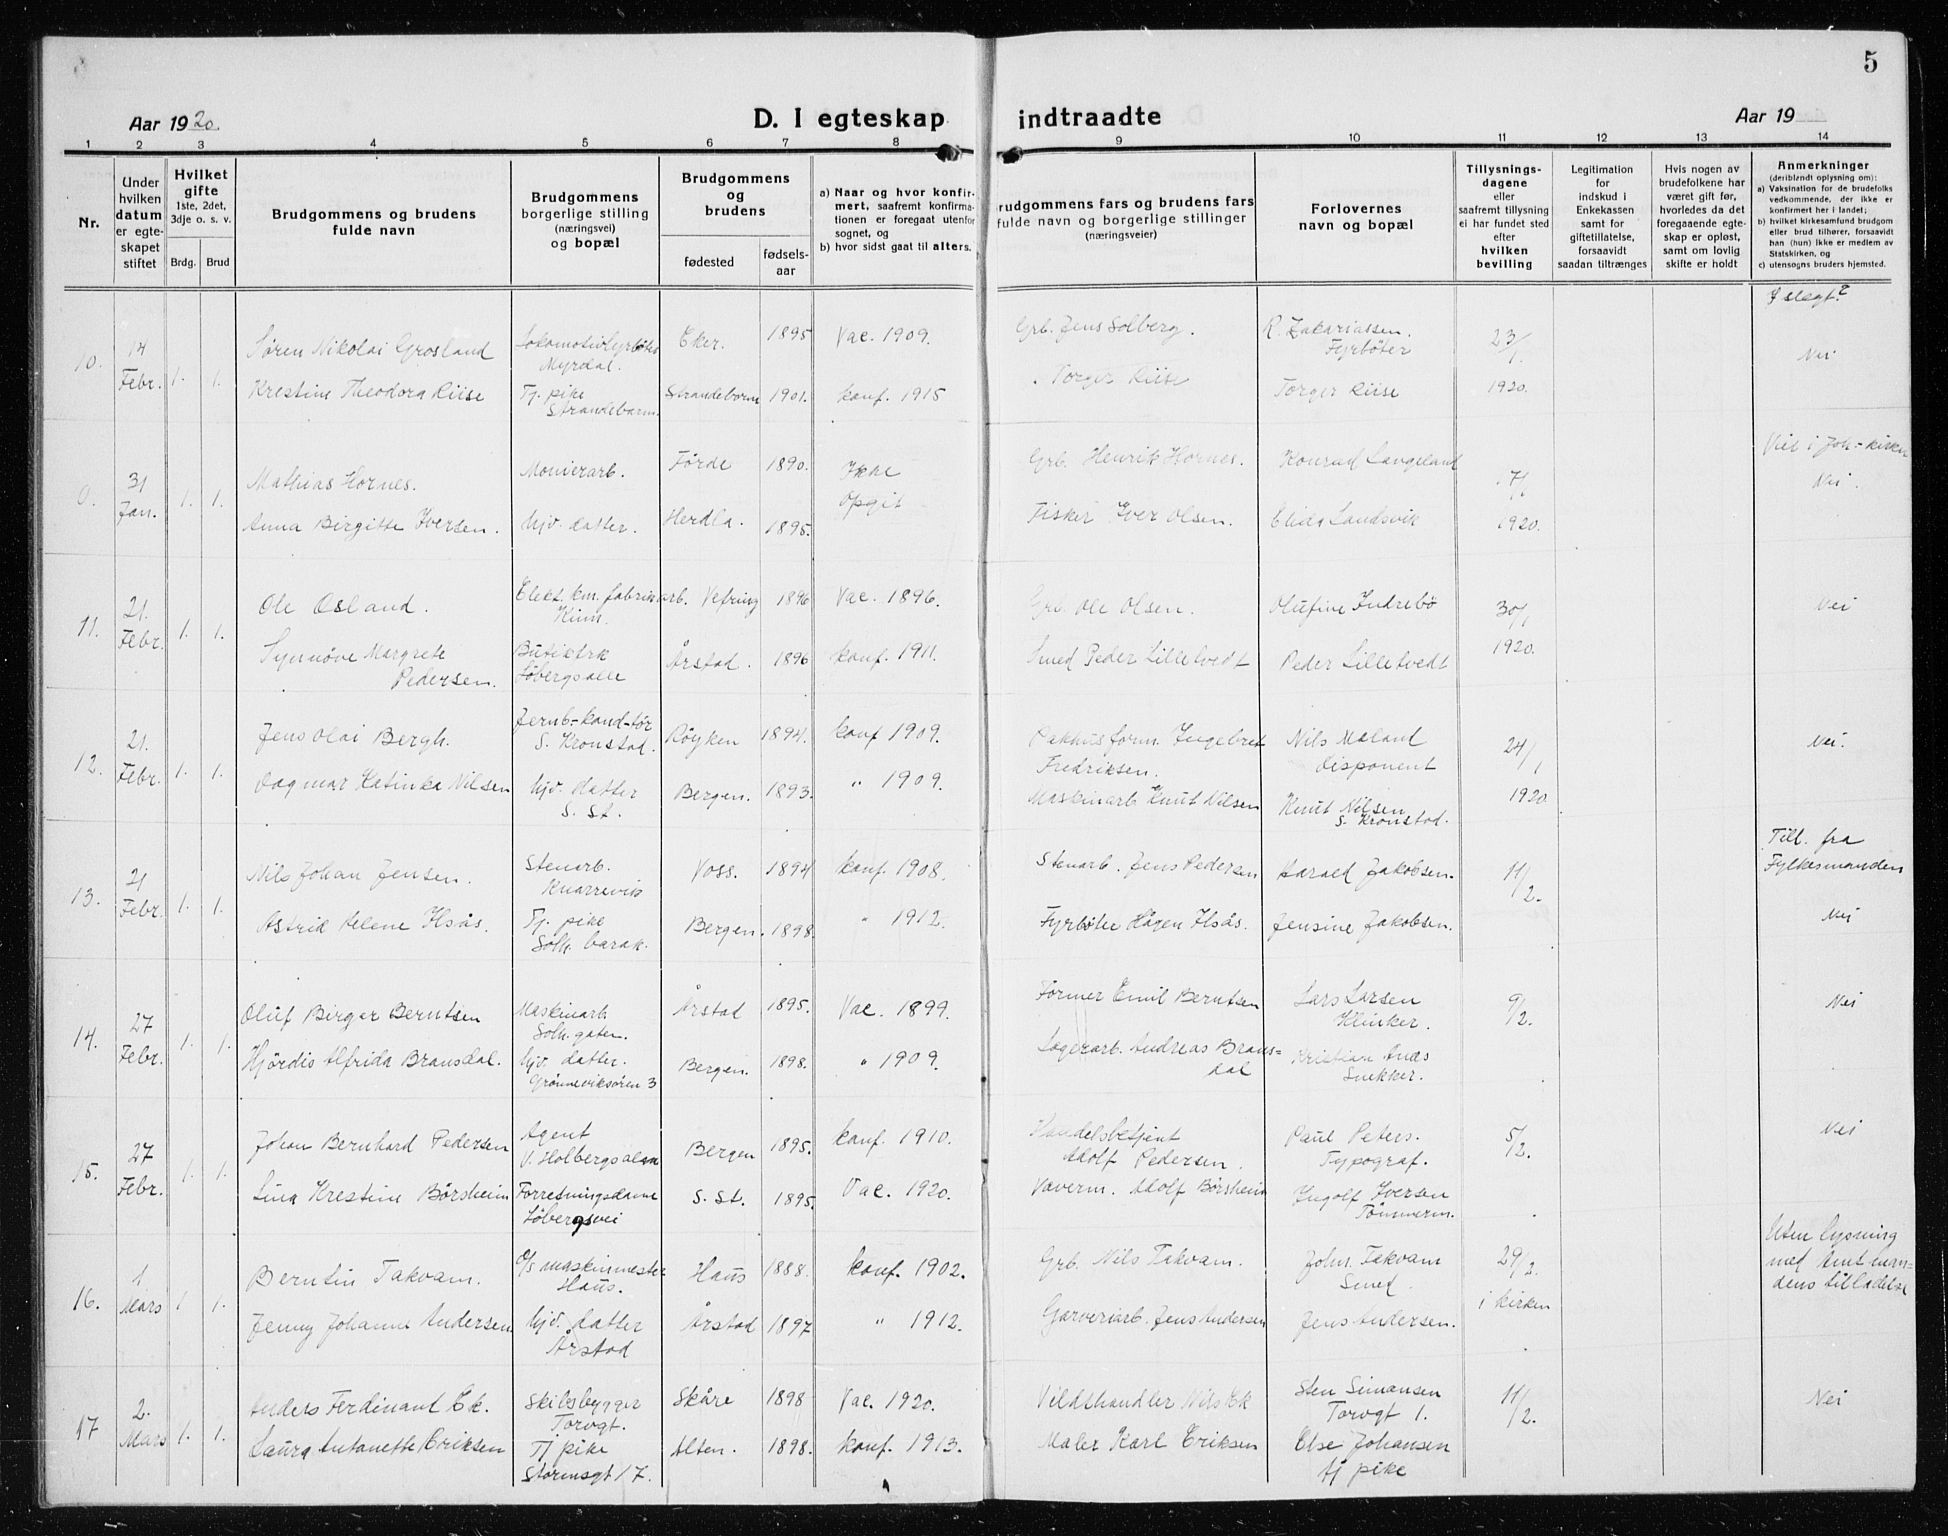 5
Aar 1920.
D. I egteskap indtraadte
Aar 19
1 2 3 4 5 6 7 8 9 10 11 12 13 14
Nr.
Under hvilken datum er egteskapet stiftet
Hvilket gifte 1ste, 2det, 3dje o. s. v.
Brdg. Brud
Brudgommens og brudens fulde navn
Brudgommens borgerlige stilling (næringsvei) og bopæl
Brudgommens og brudens
fødested
fødselsaar
a) Naar og hvor konfirmert, saafremt konfirmationen er foregaat utenfor sognet, og
b) hvor sidst gaat til alters.
rudgommens fars og brudens fars fulde navn og borgerlige stillinger (næringsveier)
Forlovernes navn og bopæl
Tillysningsdagene eller saafremt tillysning ei har fundet sted efter hvilken bevilling
Legitimation for indskud i Enkekassen samt for giftetillatelse, forsaavidt saadan tiltrænges
Hvis nogen av brudefolkene har været gift før, hvorledes da det foregaaende egteskap er opløst, samt om lovlig skifte er holdt
Anmerkninger (deriblendt oplysning om):
a) Vaksination for de brudefolks vedkommende, der ikke er konfirmert her i landet;
b) hvilket kirkesamfund brudgom eller brud tilhører, forsaavidt han (hun) ikke er medlem av Statskirken, og
c) utensogns bruders hjemsted.
I slegt?
10. 14 Febr. 1. 1.
Søren Nikolai Grosland Lokomotivfyrbøter Myrdal. Eker. 1895 Vac. 1909. Grb. Jens Solberg. R. Zakariassen. Fyrbøter 23/1. Nei
Krestine Theodora Riise Tj. pike Strandebarm. Strandebarm 1901. konf. 1915 Torger Riise Torger Riise 1920.
Viet i Joh-kirken
9. 31 Jan. 1. 1.
Mathias Hornes. Monierarb. Førde 1890. Ikke Opgit Grb. Henrik Hornes. Konrad Langeland 7/1 Nei.
Anna Birgitte Iversen. hjv. datter. Herdla. 1895. Fisker Iver Olsen. Elida Landsvik 1920.
11. 21. Febr. 1. 1.
Ole Osland. Elekt. km. fabrikarb. Kinn. Vefring 1896 Vac. 1896. Grb. Ole Olsen. Olufine Indrebö 30/1 Nei
Synnöve Margrete Pedersen. Butikbrk Löbergsalle Årstad. 1896 konf. 1911. Smed Peder Lilletvedt Peder Lilletvedt 1920.
12. 21. Febr. 1. 1.
Jens Olai Bergh. Jernb-kond-tör S. Kronstad. Röyken 1894. konf 1909. Pakhusform. Ingebret Fredriksen. Nils Moland disponent 24/1 Nei.
Dagmar Katinka Nilsen hjv. datter S. St. Bergen. 1893. " 1909. Maskinarb Knut Nilsen Knut Nilsen S. Kronstad. 1920
Till. fra Fylkesmanden
13. 21 Febr. 1. 1.
Nils Johan Jensen. Stenarb. Knarrevik Voss. 1894 konf. 1908. Stenarb. Jens Pedersen Harald Jakobsen. 11/2.
Astrid Helene Ilsås. Tj. pike Solh. barak. Bergen. 1898. " 1912. Fyrböter Hågen Ilsås. Jensine Jakobsen. Nei
14. 27 Febr. 1. 1.
Oluf Birger Berntsen Maskinarb Solh. gaten. Årstad 1895. Vac. 1899. Former Emil Berntsen Lars Larsen Klinker. 9/2. Nei
Hjördis Alfrida Bransdal. hjv. datter. Grønneviksören 3 Bergen. 1898. " 1909. Lagerarb. Andreas Bransdal Kristian Anes Snekker.
15. 27 Febr. 1. 1.
Johan Bernhard Pedersen Agent V. Holbergsalm Bergen 1895. konf. 1910. Handelsbetjent Adolf Pedersen. Paul Peters. Typograf. 5/2. Nei
Lina Krestine Börsheim Forretningsdame Löbergsvei S. St. 1895. Vac. 1920. Væverm. Adolf Börsheim Ingolf Iversen Tömmerm.
16. 1 Mars 1 1.
Berntin Takvam. O/s maskinmester Haus. Haus 1888. konf. 1902. Grb. Nils Takvam. Johs. Takvam Smed. 29/2. i kirken
Uten lysning med Amtmandens tilladelse
Jenny Johanne Andersen. hjv. datter Årstad Årstad 1897 " 1912. Garveriarb. Jens Andersen Jens Andersen.
17 2. Mars 1. 1.
Anders Ferdinand Ek. Skibsbygger Torvgt. Skåre 1898 Vac. 1920. Vildthandler Nils Ek Sten Simonsen Torvgt 1. 11/2. Nei
Laura Antonette Eriksen Tj pike Stormsgt 17. Alten. 1898. konf. 1913. Maler Karl Eriksen Else Johansen tj pike